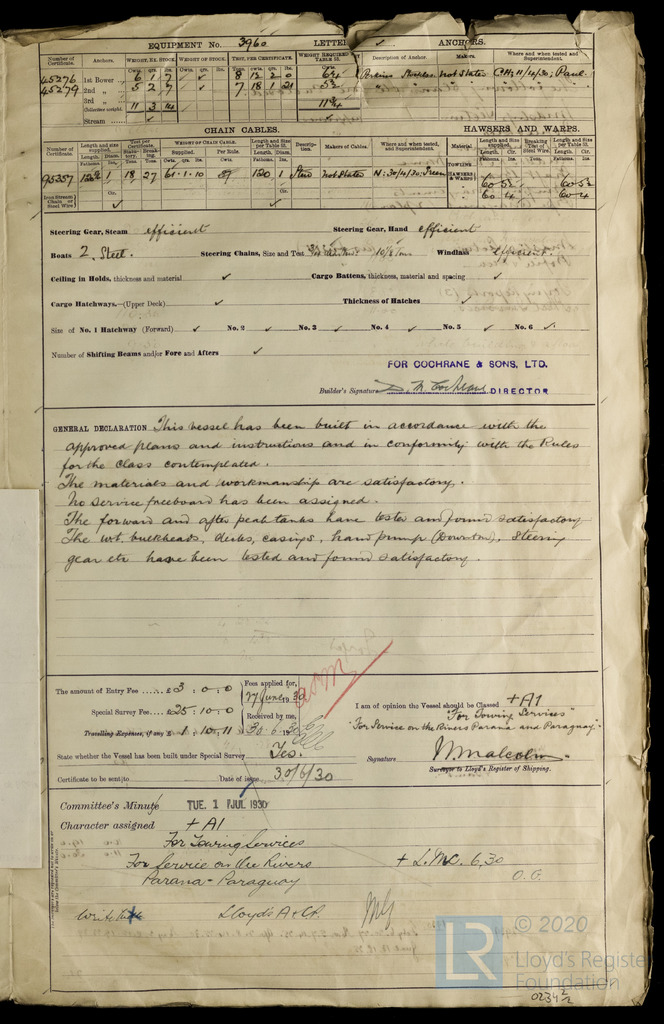 EQUIPMENT No. 3960 LETTER ✓ ANCHORS.
Number of Certificate. Anchors. WEIGHT, EX. STOCK. WEIGHT OF STOCK. TEST, PER CERTIFICATE. WEIGHT REQUIRED Description of Anchor. Makers. Where and when tested and Superintendent.
45276 1st Bower 6 1 7 ✓ 8 12 2 0 Stockless not State
45279 2nd „ 5 2 7 7 18 1 21
3rd „
Collective weight. 11 3 14 11¾
Stream
CHAIN CABLES. HAWSERS AND WARPS.
Number of Certificate. Length and size supplied. Test per Certificate. WEIGHT OF CHAIN CABLE. Length and Size per Table 53. Description. Makers of Cables. Where and when tested, and Superintendent. Material Length and Size supplied. Breaking Test of Steel Wire. Length and Size per Table 53.
Supplied. Per Rule.
95357 1 18 27 61.1.10 120 1 Stud not States N. 30/4/30
TOWLINE
HAWSERS & WARPS
60 4 60 4
Iron Stream Chain or Steel Wire
Steering Gear, Steam efficient Steering Gear, Hand efficient
Boats 2. Steel. Steering Chains, Size and Test Windlass efficient.
Ceiling in Holds, thickness and material ✓ Cargo Battens, thickness, material and spacing ✓
Cargo Hatchways.—(Upper Deck) ✓ Thickness of Hatches ✓
Size of No. 1 Hatchway (Forward) ✓ No. 2 ✓ No. 3 ✓ No. 4 ✓ No. 5 ✓ No. 6 ✓
Number of Shifting Beams and/or Fore and Afters ✓
FOR COCHRANE & SONS, LTD.
Builder's Signature D. M. Cochrane DIRECTOR
GENERAL DECLARATION This vessel has been built in accordance with the
approved plans and instructions and in conformity with the Rules
for the class contemplated.
The materials and workmanship are satisfactory.
No service freeboard has been assigned.
The forward and after peak tanks have tested and found satisfactory
The wt. bulkheads, decks, casings, hand pump (Downton), steering
gear etc have been tested and found satisfactory.
The amount of Entry Fee ..... £ 3 : 0 : 0 Fees applied for,
Special Survey Fee .... £ 25 : 10 : 0 27 June 1930
Received by me,
Travelling Expenses, if any £ 1 : 10 : 11 30.6.30
I am of opinion the Vessel should be Classed + A1
"For Towing Services"
"For Service on the Rivers Parana and Paraguay."
State whether the Vessel has been built under Special Survey Yes. Signature W. Malcolm
Surveyor to Lloyd's Register of Shipping.
Certificate to be sent to Date of issue 30/6/30
Committee's Minute TUE. 1 JUL 1930
Character assigned + A1
For Towing Services
For Service on the Rivers + L.M.C. 6,30
Parana - Paraguay O.G.
Lloyd's A & CP.
© 2020
LR Lloyd's Register
Foundation